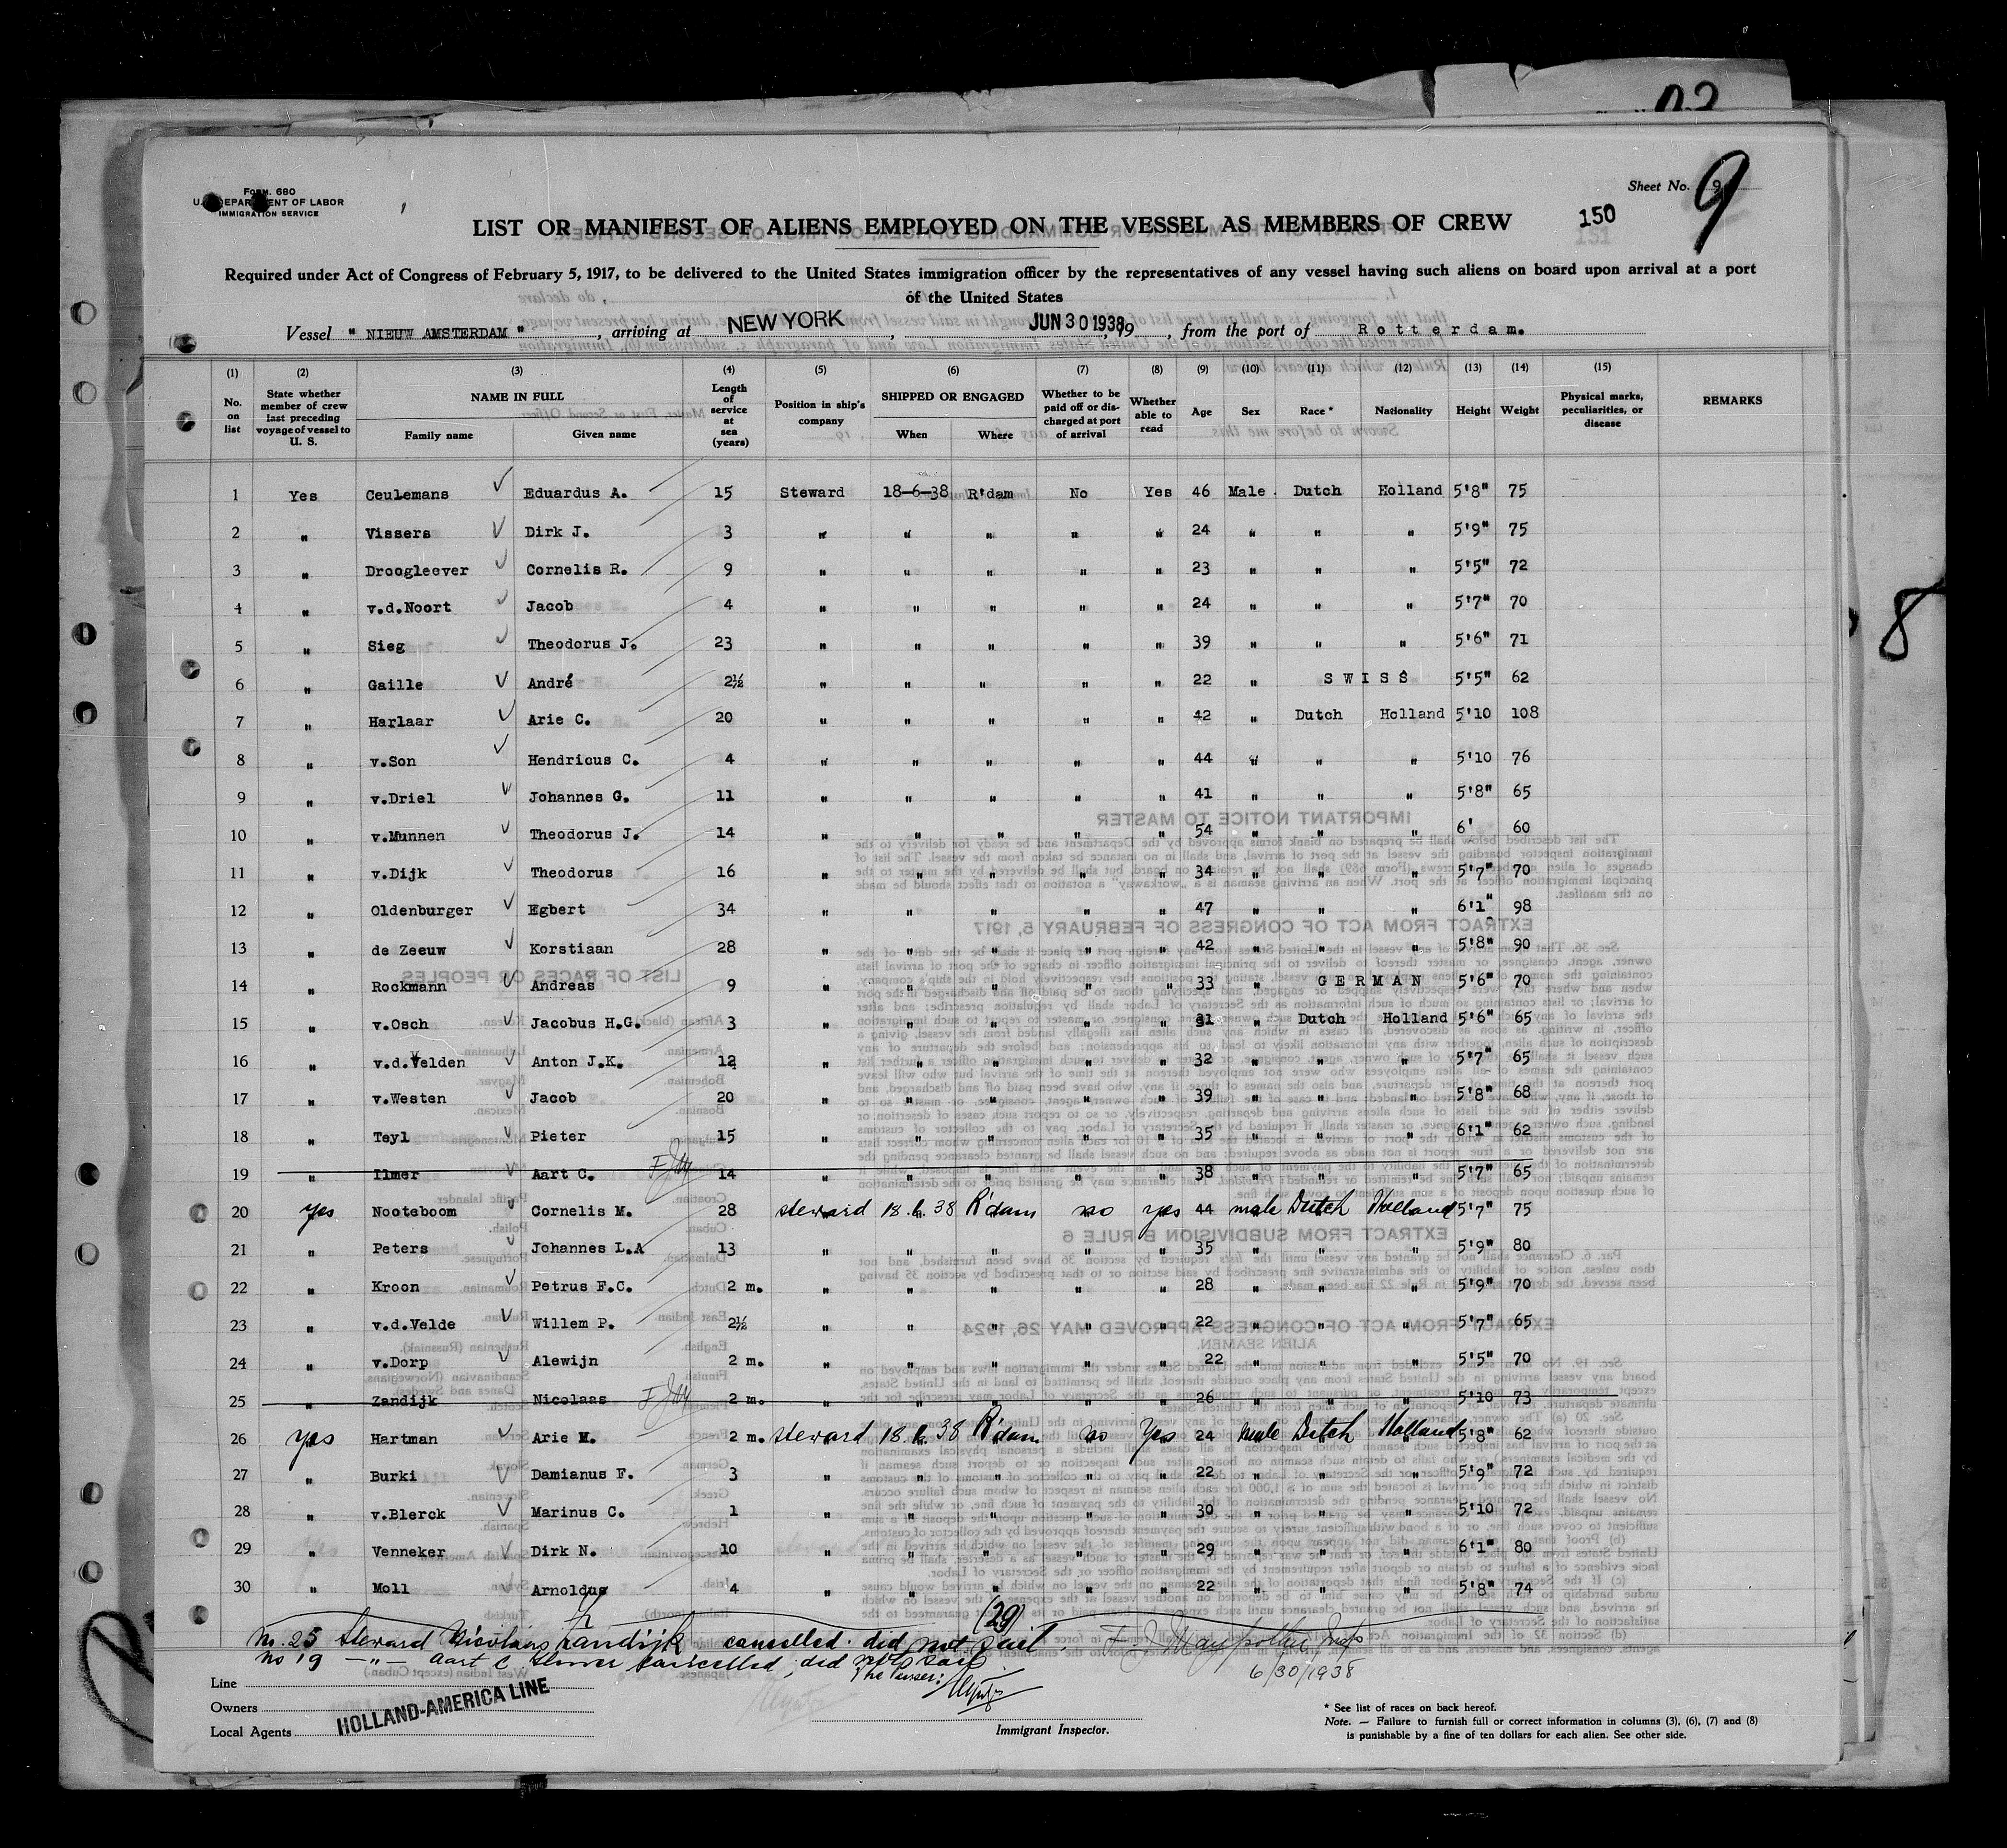 93
Form. 680
U. S. DEPARTMENT OF LABOR
IMMIGRATION SERVICE
Sheet No. 9
9
150
LIST OR MANIFEST OF ALIENS EMPLOYED ON THE VESSEL AS MEMBERS OF CREW
Required under Act of Congress of February 5, 1917, to be delivered to the United States immigration officer by the representatives of any vessel having such aliens on board upon arrival at a port
of the United States
Vessel " NIEUW AMSTERDAM ", arriving at NEW YORK, JUN 30 1938, 19 , from the port of Rotterdam.
(1) No. on list (2) State whether member of crew last preceding voyage of vessel to U. S. (3) NAME IN FULL Family name Given name (4) Length of service at sea (years) (5) Position in ship's company (6) SHIPPED OR ENGAGED When Where (7) Whether to be paid off or discharged at port of arrival (8) Whether able to read (9) Age (10) Sex (11) Race * (12) Nationality (13) Height (14) Weight (15) Physical marks, peculiarities, or disease REMARKS
1 Yes Ceulemans Eduardus A. 15 Steward 18-6-38 R'dam No Yes 46 Male Dutch Holland 5'8" 75
2 " Vissers Dirk J. 3 " " " " " 24 " " " 5'9" 75
3 " Droogleever Cornelis R. 9 " " " " " 23 " " " 5'5" 72
4 " v.d.Noort Jacob 4 " " " " " 24 " " " 5'7" 70
5 " Sieg Theodorus J. 23 " " " " " 39 " " " 5'6" 71
6 " Gaille André 2½ " " " " " 22 " SWISS 5'5" 62
7 " Harlaar Arie C. 20 " " " " " 42 " Dutch Holland 5'10 108
8 " v.Son Hendricus C. 4 " " " " " 44 " " " 5'10 76
9 " v.Driel Johannes G. 11 " " " " " 41 " " " 5'8" 65
10 " v.Munnen Theodorus J. 14 " " " " " 54 " " " 6' 60
11 " v.Dijk Theodorus 16 " " " " " 34 " " " 5'7" 70
12 " Oldenburger Egbert 34 " " " " " 47 " " " 6'1" 98
13 " de Zeeuw Korstiaan 28 " " " " " 42 " " " 5'8" 90
14 " Rockmann Andreas 9 " " " " " 33 " GERMAN 5'6" 70
15 " v.Osch Jacobus H.G. 3 " " " " " 31 " Dutch Holland 5'6" 65
16 " v.d.Velden Anton J.K. 12 " " " " " 32 " " " 5'7" 65
17 " v.Westen Jacob 20 " " " " " 39 " " " 5'8" 68
18 " Teyl Pieter 15 " " " " " 35 " " " 6'1" 62
19 " Ilmer Aart C. 14 " " " " " 38 " " " 5'7" 65
20 yes Nooteboom Cornelis M. 28 steward 18.6.38 R'dam no yes 44 male Dutch Holland 5'7" 75
21 " Peters Johannes L.A 13 " " " " " 35 " " " 5'9" 80
22 " Kroon Petrus F.C. 2 m. " " " " " 28 " " " 5'9" 70
23 " v.d.Velde Willem P. 2½ " " " " " 22 " " " 5'7" 65
24 " v.Dorp Alewijn 2 m. " " " " " 22 " " " 5'5" 70
25 " Zandijk Nicolaas 2 m. " " " " " 26 " " " 5'10 73
26 yes Hartman Arie M. 2 m. steward 18.6.38 R'dam no Yes 24 male Dutch Holland 5'8" 62
27 " Burki Damianus F. 3 " " " " " 22 " " " 5'9" 72
28 " v.Blerck Marinus C. 1 " " " " " 30 " " " 5'10 72
29 " Venneker Dirk N. 10 " " " " " 29 " " " 6'1" 80
30 " Moll Arnoldus 4 " " " " " 22 " " " 5'8" 74
(29)
No. 25 Steward Nicolaas Zandijk cancelled. did not sail
no 19 -"- Aart C Ilmer cancelled, did not sail
The Purser:
6/30/1938
Line
Owners HOLLAND-AMERICA LINE
Local Agents
Immigrant Inspector.
* See list of races on back hereof.
Note. — Failure to furnish full or correct information in columns (3), (6), (7) and (8)
is punishable by a fine of ten dollars for each alien. See other side.
8